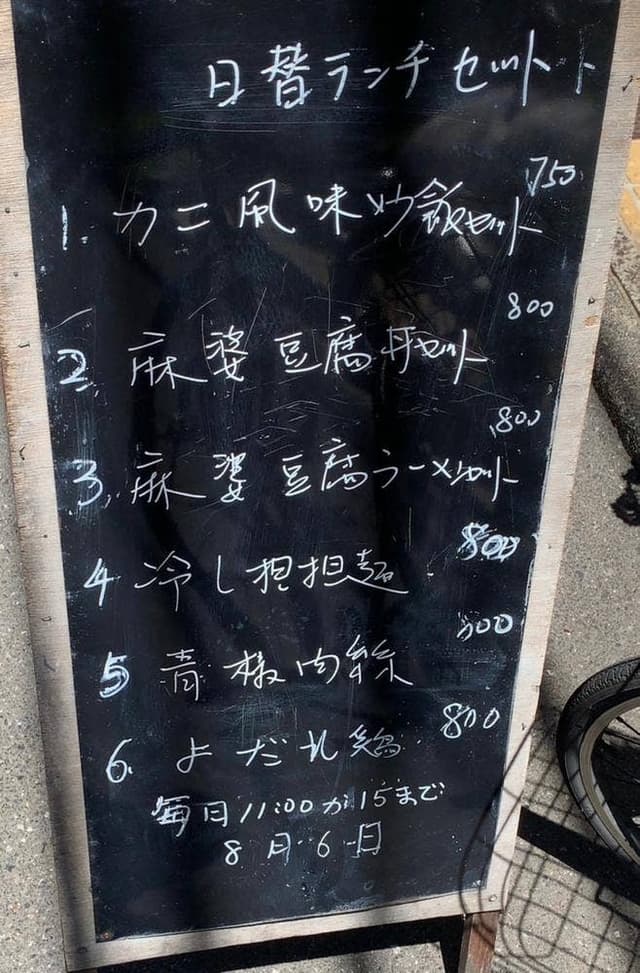 日替ランチセット
750
1. カニ風味炒飯セット
800
2 麻婆豆腐丼セット
800
3. 麻婆豆腐ラーメンセット
800
4 冷し担担麺
5 青椒肉絲
800
6. よだれ鶏
毎日11:00か15まで
8月6日